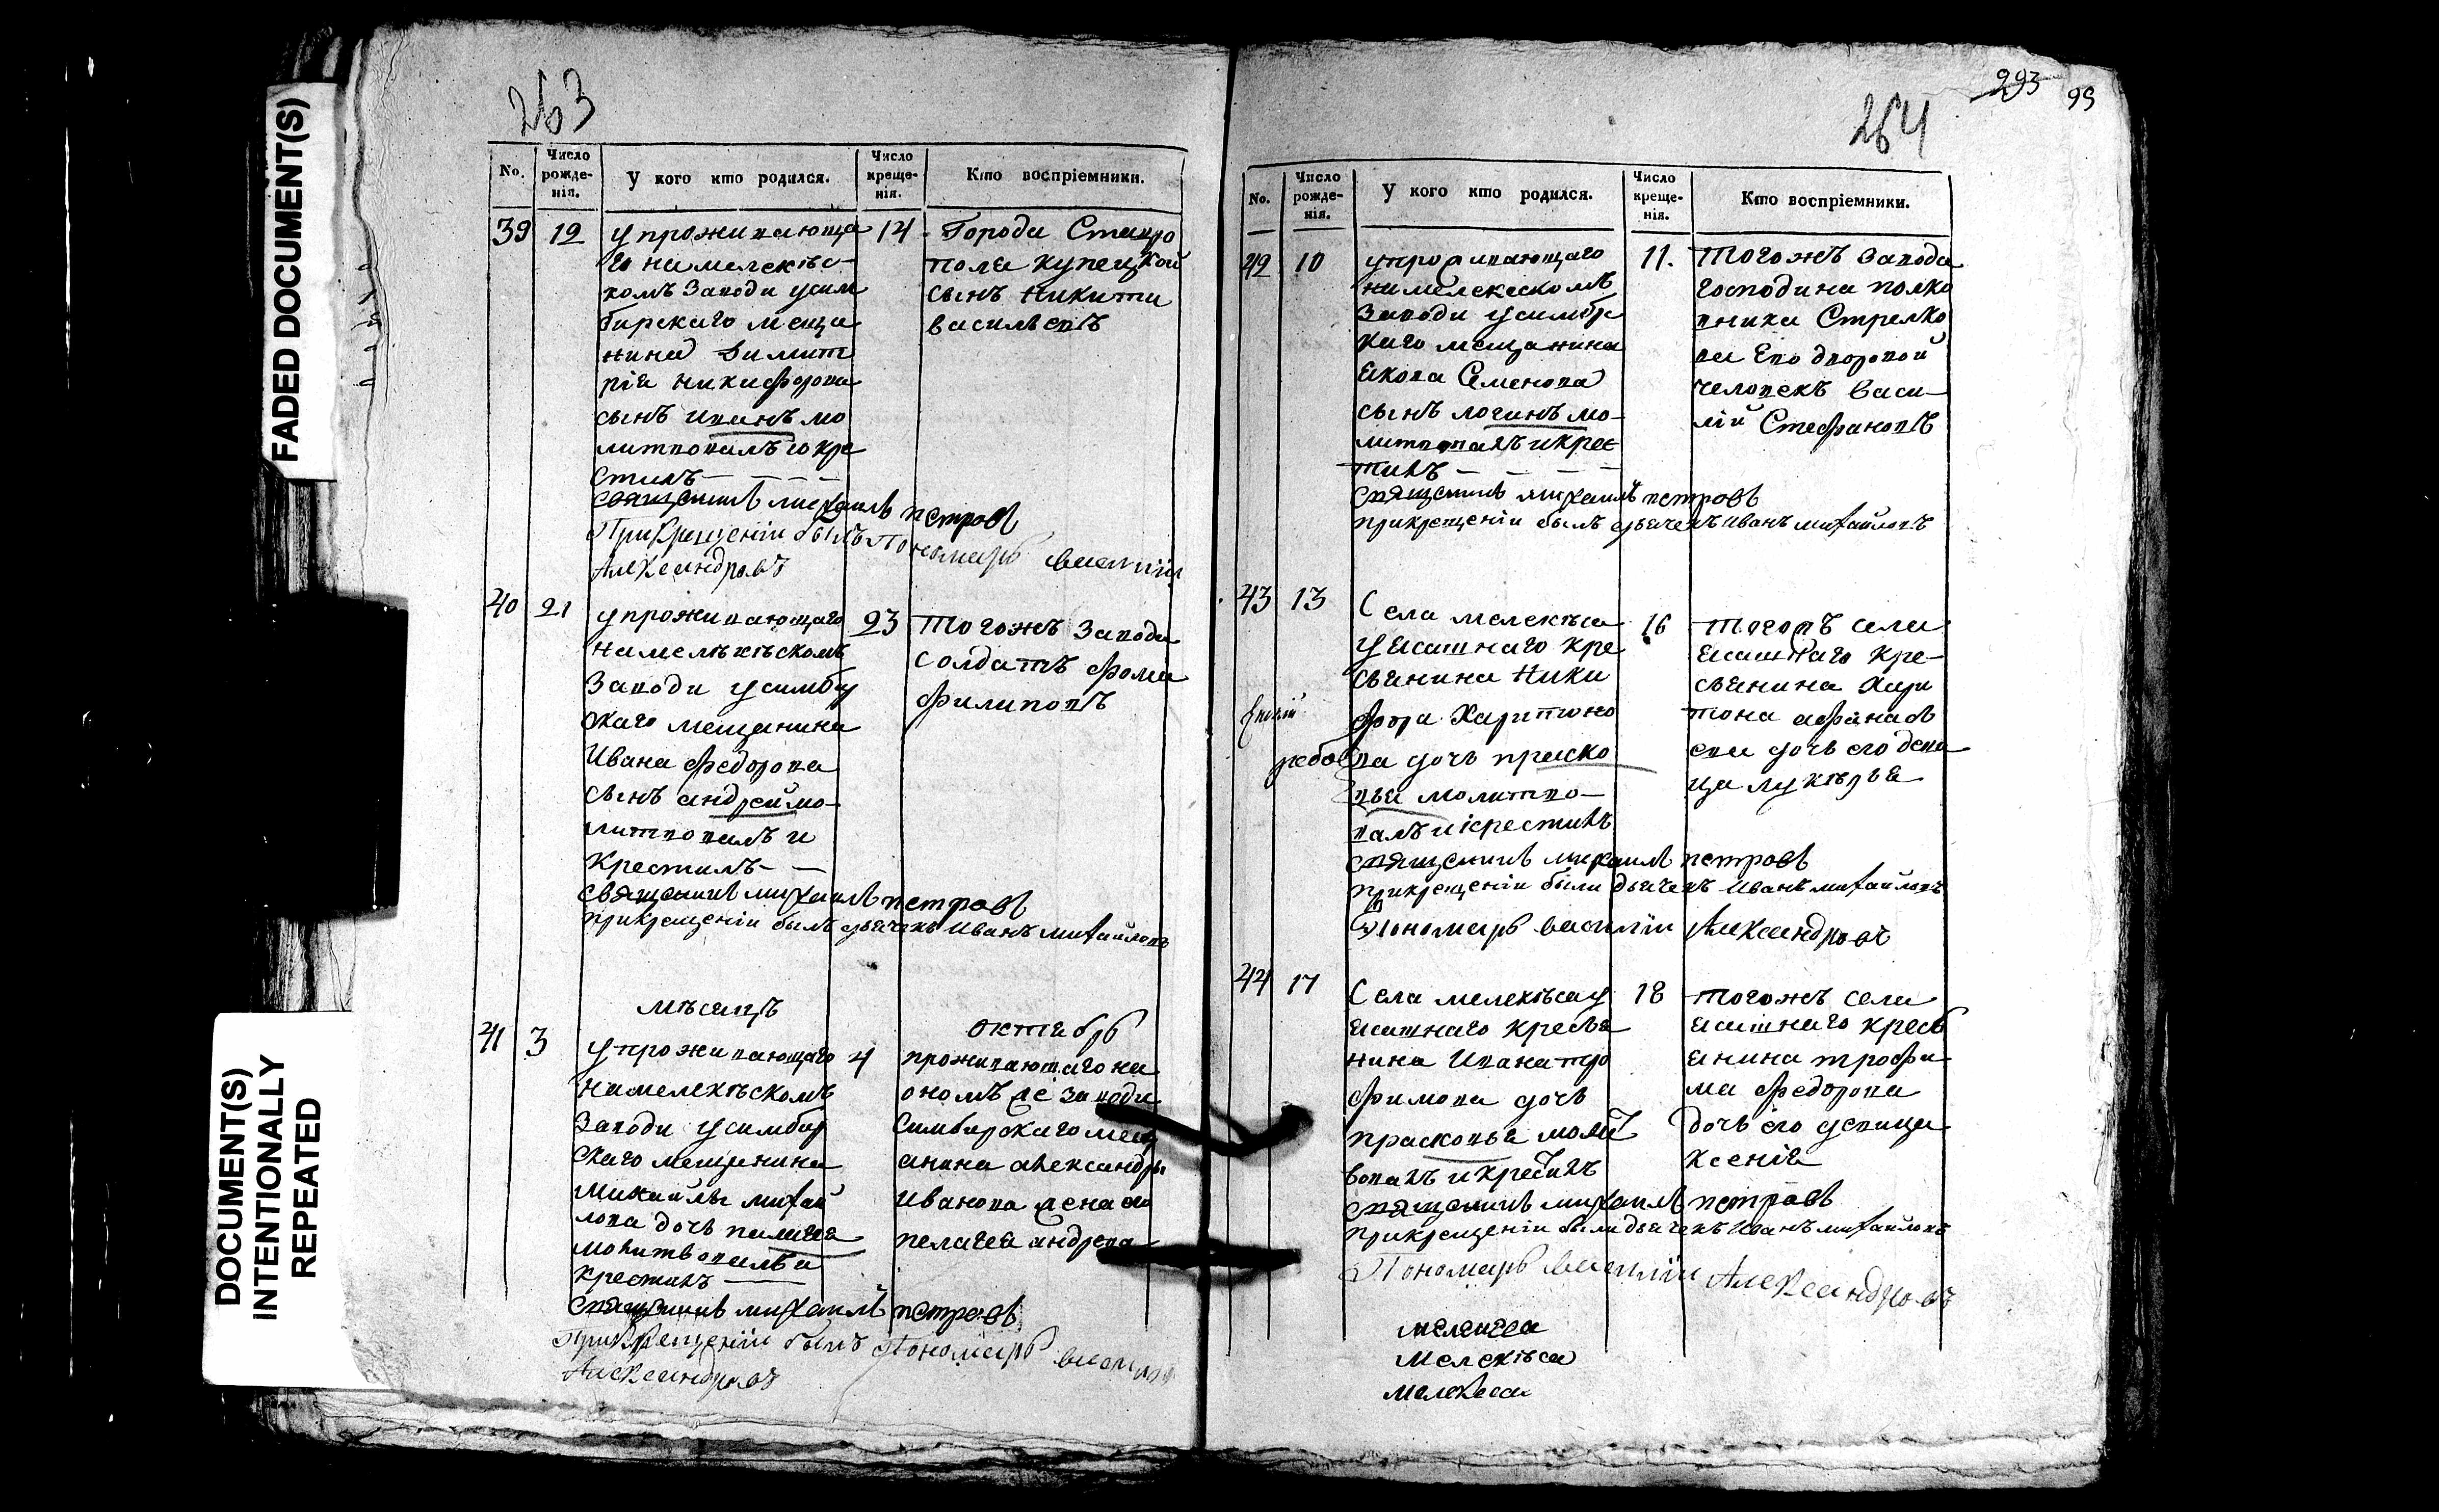 FADED DOCUMENT(S)
DOCUMENT(S)
INTENTIONALLY
REPEATED
263
No.
Число рожде-нія.
У кого кто родился.
Число креще-нія.
Кто воспріемники.
39 12
у проживающа
го на мелекѣс-
комъ Заводи усим
бирскаго меща
нина Димит
рія никифорова
сынъ иванъ мо
литвовалъ и кре
стилъ
14
Города Ставро
поля купецкой
сынъ никита
васильевъ
священникъ михаилъ петровъ
При Крещеніи былъ Пономарь василіи
Александровъ
40 21
упроживающаго
на мелѣкѣскомъ
Заводи усимбу
скаго мещанина
Ивана федорова
сынъ андреи мо-
литвовалъ и
Крестилъ
23
тогожъ Завода
солдатъ фома
филиповъ
священникъ михаилъ петровъ
прикрещеніи былъ дьячекъ Иванъ михайловъ
мѣсяцъ
октябрь
41 3
упроживающаго
на мелекѣскомъ
Заводи усимбир
скаго мещанина
михаилы михай
лова дочь пелагея
молитвовалъ и
крестилъ
4
проживающаго на
ономъ же заводи
Симбирскаго мещ
анина александры
Иванова жена ево
пелагея андрева
священникъ михаилъ петровъ
При Крещеніи былъ Пономарь василіи
Александровъ
264
293
99
No.
Число рожде-нія.
У кого кто родился.
Число креще-нія.
Кто воспріемники.
42 10
упроживающаго
на мелекескомъ
Заводи усимбр
каго мещанина
якова Семенова
сынъ логинъ мо-
литвовалъ и крес
тилъ
11.
тогожъ Завода
господина полко
вника Стрелко
ва Ево дворовой
человекъ Васи-
лій Стефановъ
священникъ михаилъ петровъ
прикрещеніи былъ дьячекъ Иванъ михайловъ
43 13
Села мелекѣса
у ясашнаго кре
сьянина Ники
фора Харитоно
ва дочь праско
вья молитво-
валъ и крестилъ
16
тогожъ села
ясашнаго кре-
сьянина Хари
тона афанась
ева дочь его деви
ца лукѣрья
священникъ михаилъ петровъ
прикрещеніи были дьячекъ Иванъ михайловъ
Пономарь василіи Александровъ
44 17
Села мелекѣса у
ясашнаго кресья
нина Ивана тро
фимова дочь
прасковья молит
вовалъ и крестилъ
18
тогожъ села
ясашнаго кресь
янина трофи-
ма федорова
дочь его девица
ксенія
священникъ михаилъ петровъ
прикрещеніи были дьячекъ Иванъ михайловъ
Пономарь василіи Александровъ
мелекеса
Мелекѣса
мелекеса